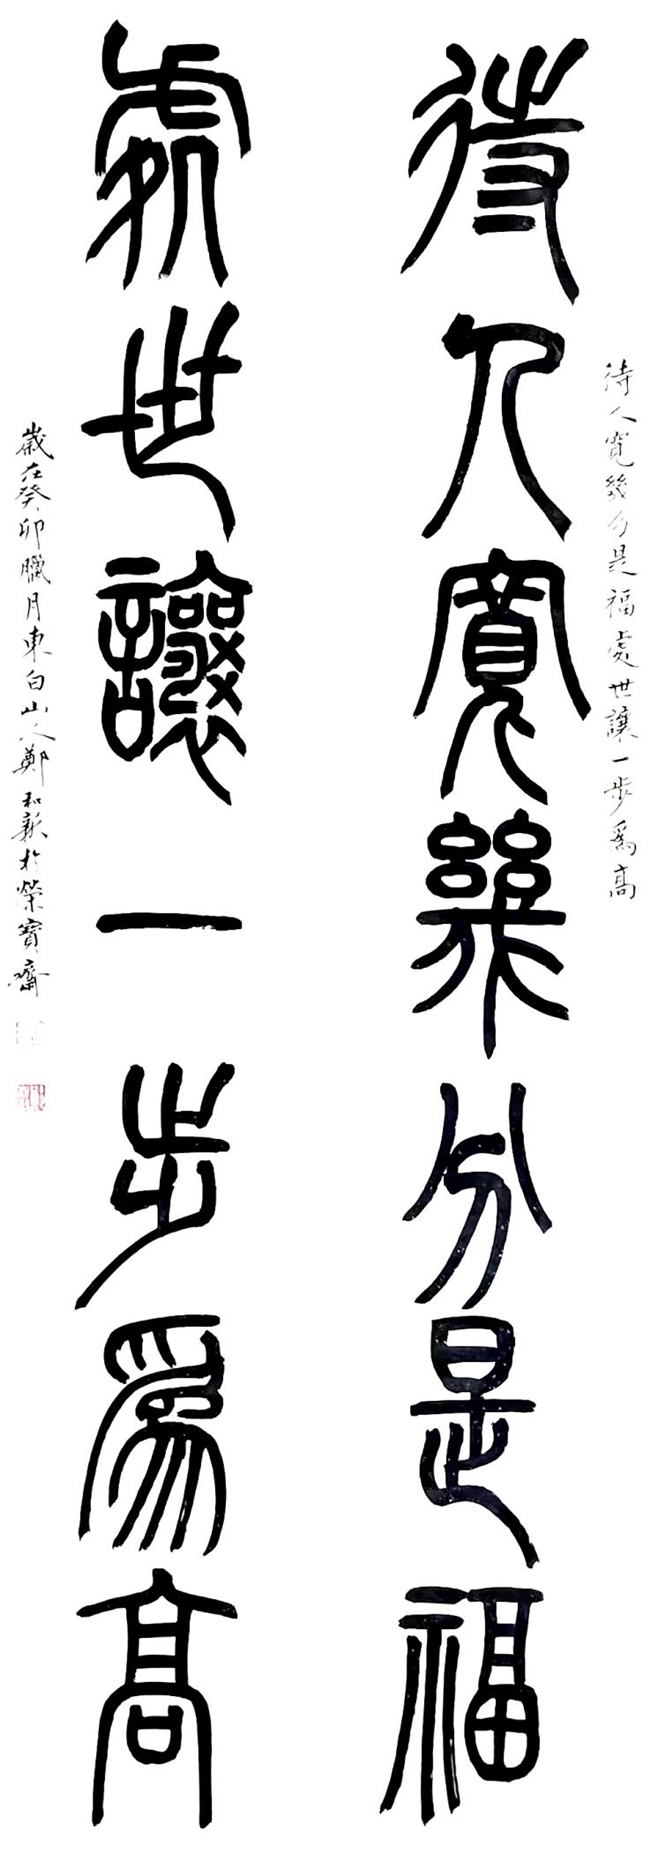 待人寬幾分是福處世讓一步爲高
待人寬幾分是福
處世讓一步爲高
歲在癸卯臘月東白山人鄭和新於榮寶齋